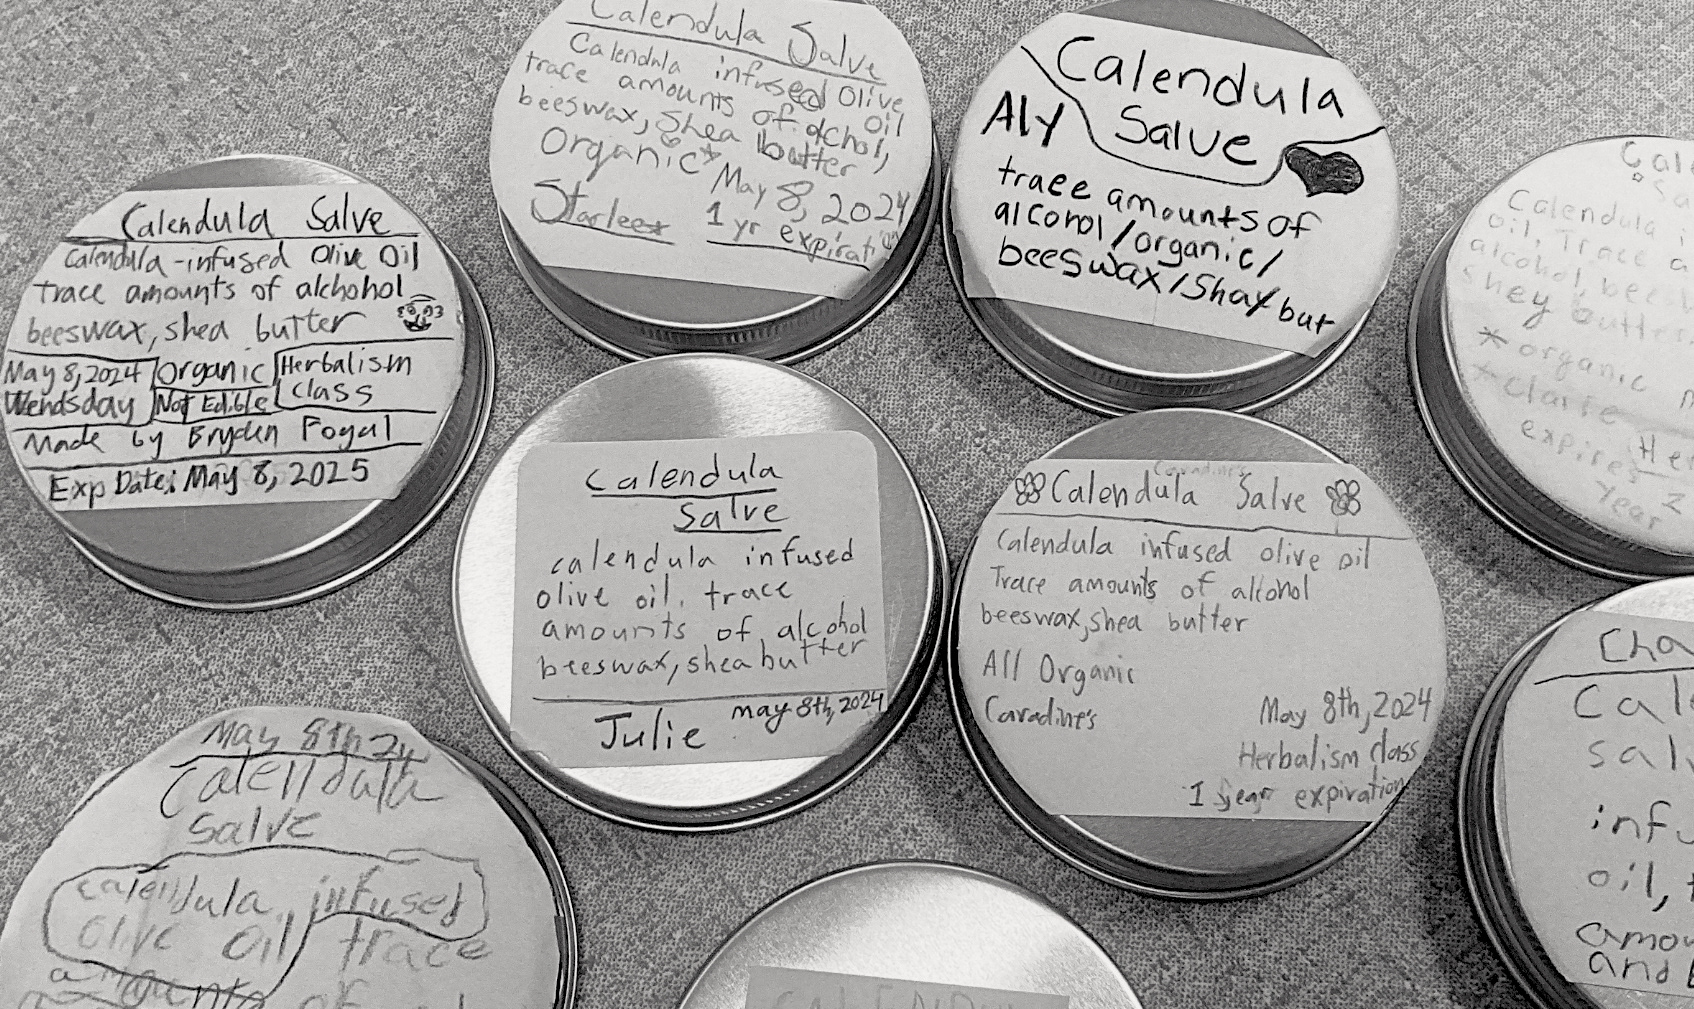 Calendula Salve
Calendula infused Olive Oil
trace amounts of alchol,
beeswax, Shea butter
Organic* May 8, 2024
Starlee 1 yr expirati
Calendula
Aly Salve
trace amounts of
alcorol/organic/
beeswax/Shay but
Calendula Salve
Calendula-infused Olive Oil
trace amounts of alchohol
beeswax, shea butter
May 8, 2024 Organic Herbalism
Wendsday Not Edible class
Made by Bryden Fogal
Exp Date: May 8, 2025
Cale
Sa
Calendula i
oil. Trace a
alcohol, bee
Shey butter.
* organic
* Claire Her
expires
Year
Calendula
Salve
calendula infused
olive oil. trace
amounts of alcohol
beeswax, shea butter
Julie may 8th, 2024
Caradine's
Calendula Salve
Calendula infused olive oil
Trace amounts of alcohol
beeswax, shea butter
All Organic
Caradine's May 8th, 2024
Herbalism class
1 year expiration
May 8th 24
Calendula
salve
calendula infused
Olive oil trace
amounts of
Cha
Cale
salv
infu
oil, t
amou
and b
CALENDU